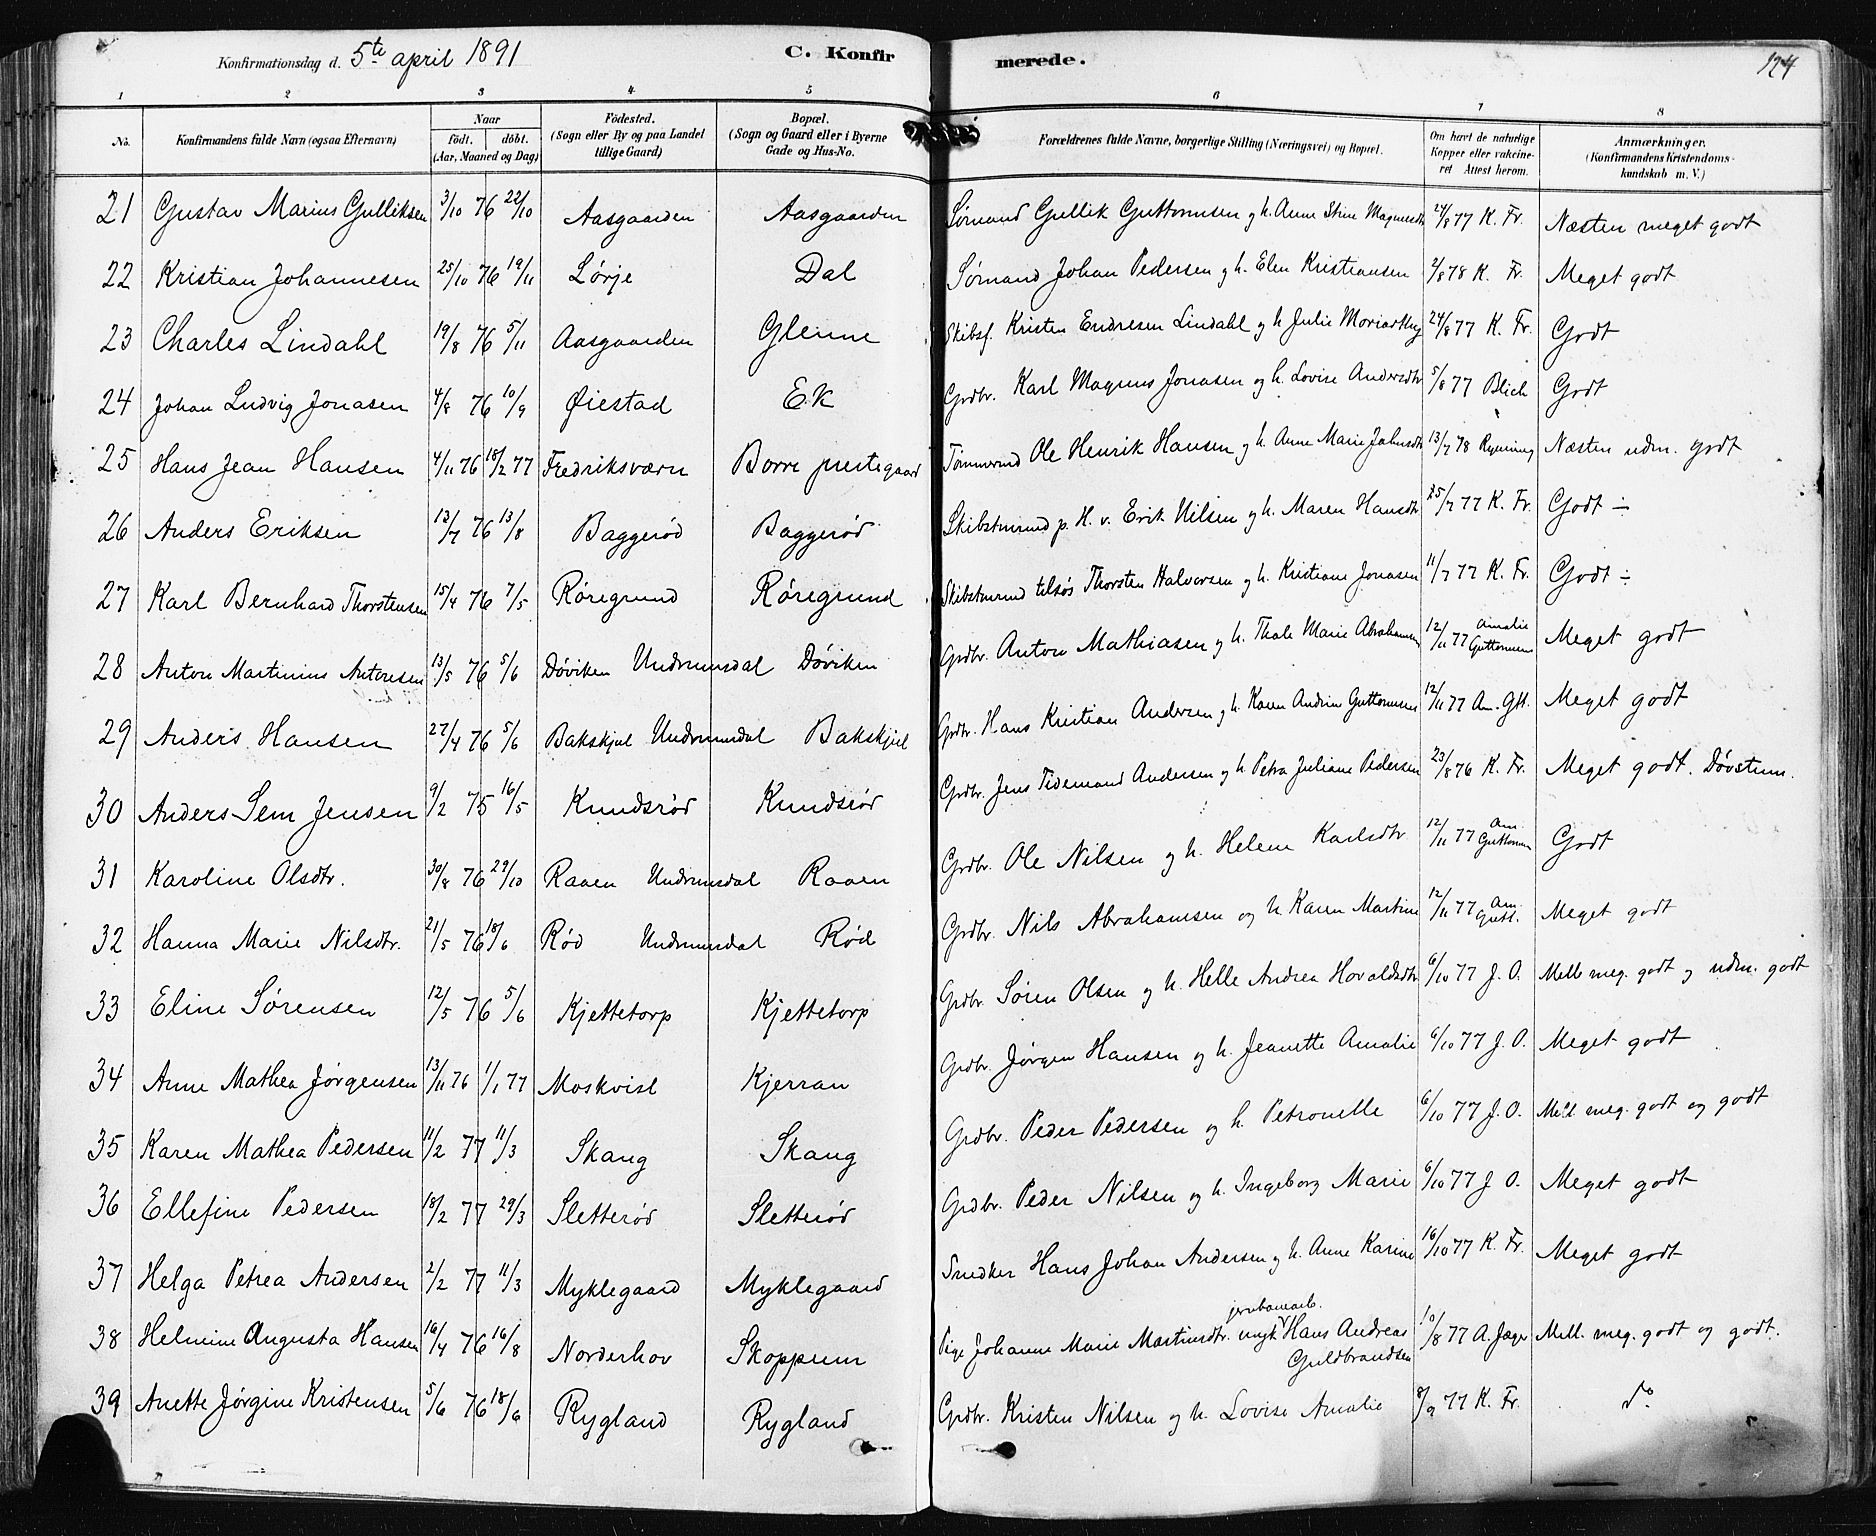 Konfirmationsdag d. 5te april 1891 C. Konfirmerede. 124
1 2 3 4 5 6 7 8
No. Konfirmandens fulde Navn (ogsaa Efternavn) Naar födt. döbt. (Aar, Maaned og Dag) Födested. (Sogn eller By og paa Landet tillige Gaard) Bopæl. (Sogn og Gaard eller i Byerne Gade og Hus-No. Forældrenes fulde Navne, borgerlige Stilling (Næringsvei) og Bopæl. Om havt de naturlige Kopper eller vakcineret Attest herom. Anmærkninger. (Konfirmandens Kristendomskundskab m. V.)
21 Gustav Marius Gulliksen 3/10 76 22/10 Aasgaarden Aasgaarden Sømand Gullik Guttormsen og h. Anne Stine Magnusdtr 24/8 77 K. Fr. Næsten meget godt
22 Kristian Johannesen 25/10 76 19/11 Lørje Dal Sømand Johan Pedersen og h. Elen Kristiansen 2/8 78 K. Fr. Meget godt
23 Charles Lindahl 19/8 76 5/11 Aasgaarden Glenne Skibsf. Kristen Endresen Lindahl og h Julie 24/8 77 K. Fr. Godt
24 Johan Ludvig Jonasen 4/8 76 10/9 Øiestad Ek Grdbr. Karl Magnus Jonasen og h. Lovise Andersdtr 5/8 77 Blich Godt
25 Hans Jean Hansen 4/11 76 18/2 77 Fredriksværn Borre prestegaard Tømmermd Ole Henrik Hansen og h. Anne Marie Johnsdtr 13/7 78 Næsten udm. godt
26 Anders Eriksen 13/7 76 13/8 Baggerød Baggerød Skibstmrmd p. H. v. Erik Nilsen og h. Maren Hansdtr 25/7 77 K. Fr. Godt ÷
27 Karl Bernhard Thorstensen 15/4 76 7/5 Røregrund Røregrund Skibstmrmd tilsøs Thorsten Halvorsen og h. Kristiane Jonasen 11/7 77 K. Fr. Godt ÷
28 Anton Martinius Antonsen 13/5 76 5/6 Døviken Undrumsdal Døviken Grdbr. Anton Mathiasen og h. Thale Marie Abrahamsen 12/11 77 Amalie Guttormsen Meget godt
29 Anders Hansen 27/4 76 5/6 Bakskjul Undrumsdal Bakskjul Grdbr. Hans Kristian Andersen og h. Karen Andrine Guttormsen 12/11 77 Am. Gtt. Meget godt
30 Anders Sem Jensen 9/2 75 16/5 Knudsrød Knudsrød Grdbr. Jens Tidemand Andersen og h Petra Juliane Pedersen 23/8 76 K. Fr. Meget godt. Døvstum.
31 Karoline Olsdtr. 30/8 76 29/10 Raaen Undrumsdal Raaen Grdbr. Ole Nilsen og h. Helene Karlsdtr 12/11 77 Am Guttormsen Godt
32 Hanna Marie Nilsdtr. 21/5 76 18/6 Rød Undrumsdal Rød Grdbr. Nils Abrahamsen og h Karen Martine 12/11 77 Am Gutt. Meget godt
33 Eline Sørensen 12/5 76 5/6 Kjettetorp Kjettetorp Grdbr. Søren Olsen og h. Helle Andrea Hovaldsdtr 6/10 77 J. O. Mell. meg. godt og udm. godt
34 Anne Mathea Jørgensen 13/11 76 1/1 77 Moskvist Kjerran Grdbr. Jørgen Hansen og h. Jeanette Amalie 6/10 77 J. O. Meget godt
35 Karen Mathea Pedersen 11/2 77 11/3 Skaug Skaug Grdbr. Peder Pedersen og h. Petronelle 6/10 77 J. O. Mell meg. godt og godt
36 Ellefine Pedersen 18/2 77 29/3 Sletterød Sletterød Grdbr. Peder Nilsen og h. Ingeborg Marie 6/10 77 J O. Meget godt
37 Helga Petrea Andersen 2/2 77 11/3 Myklegaard Myklegaard Snedker Hans Johan Andersen og h. Anne Karine 16/10 77 K. Fr. Meget godt
38 Helmine Augusta Hansen 16/4 76 16/8 Norderhov Skoppum Pige Johanne Marie Martinsdtr. ungk jernbanearb. Hans Andreas Guldbrandsen 10/8 77 A. Jæger Mell. meg. godt og godt.
39 Anette Jørgine Kristensen 5/6 76 18/6 Rygland Rygland Grdbr. Kristen Nilsen og h. Lovise Amalie 8/9 77 K. Fr. do